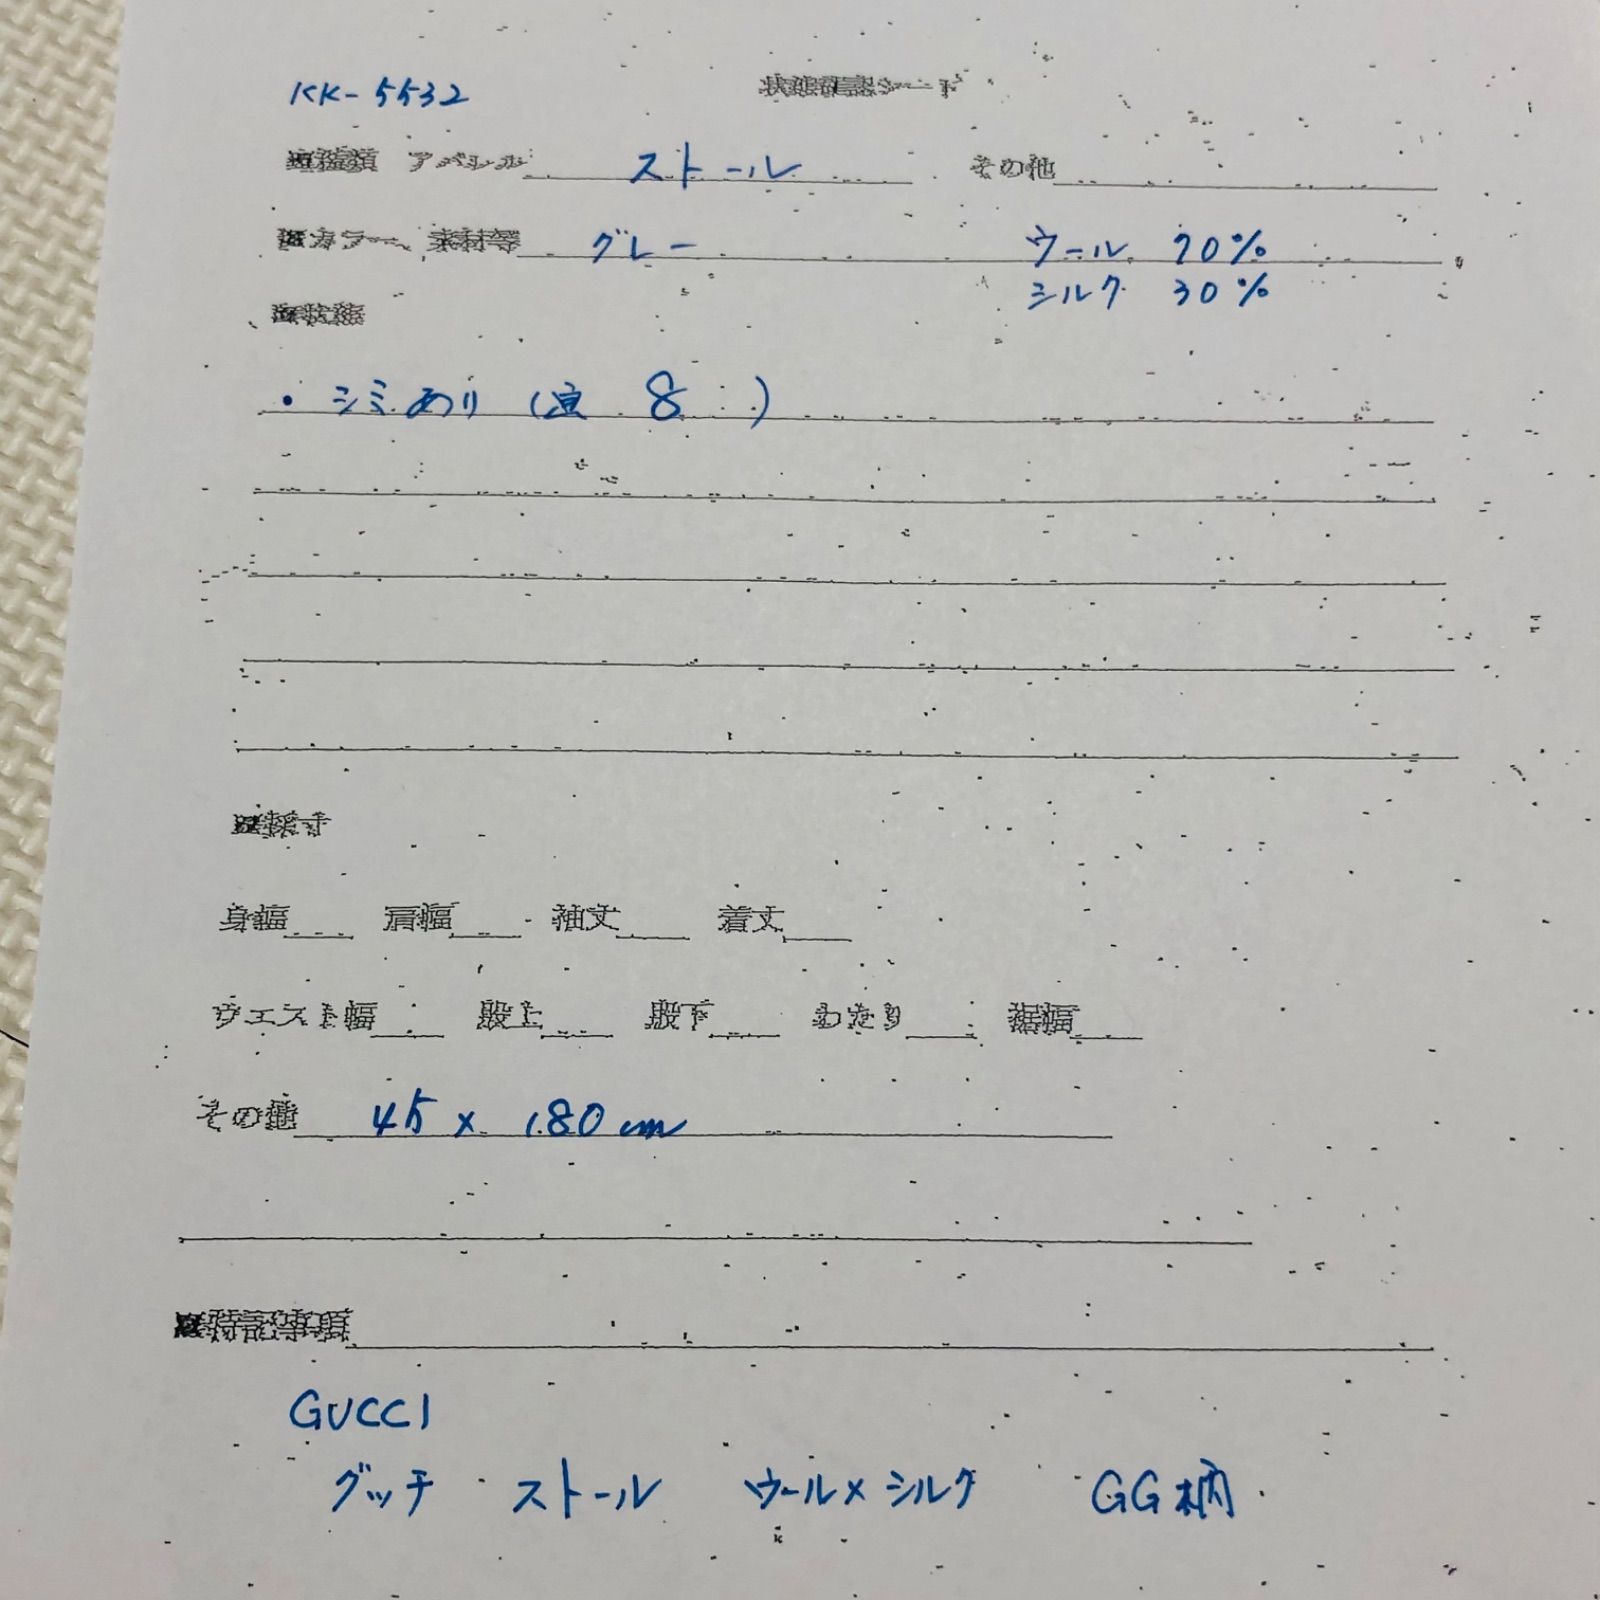 KK-5532
状態確認シート
■種類 アパレル ストール その他
■カラー、素材等 グレー ウール 70%
シルク 30%
■状態
・シミあり ( 8 )
■採寸
身幅 肩幅 袖丈 着丈
ウエスト幅 股上 股下 わたり 裾幅
その他 45 × 180cm
■特記事項
GUCCI
グッチ ストール ウール×シルク GG柄